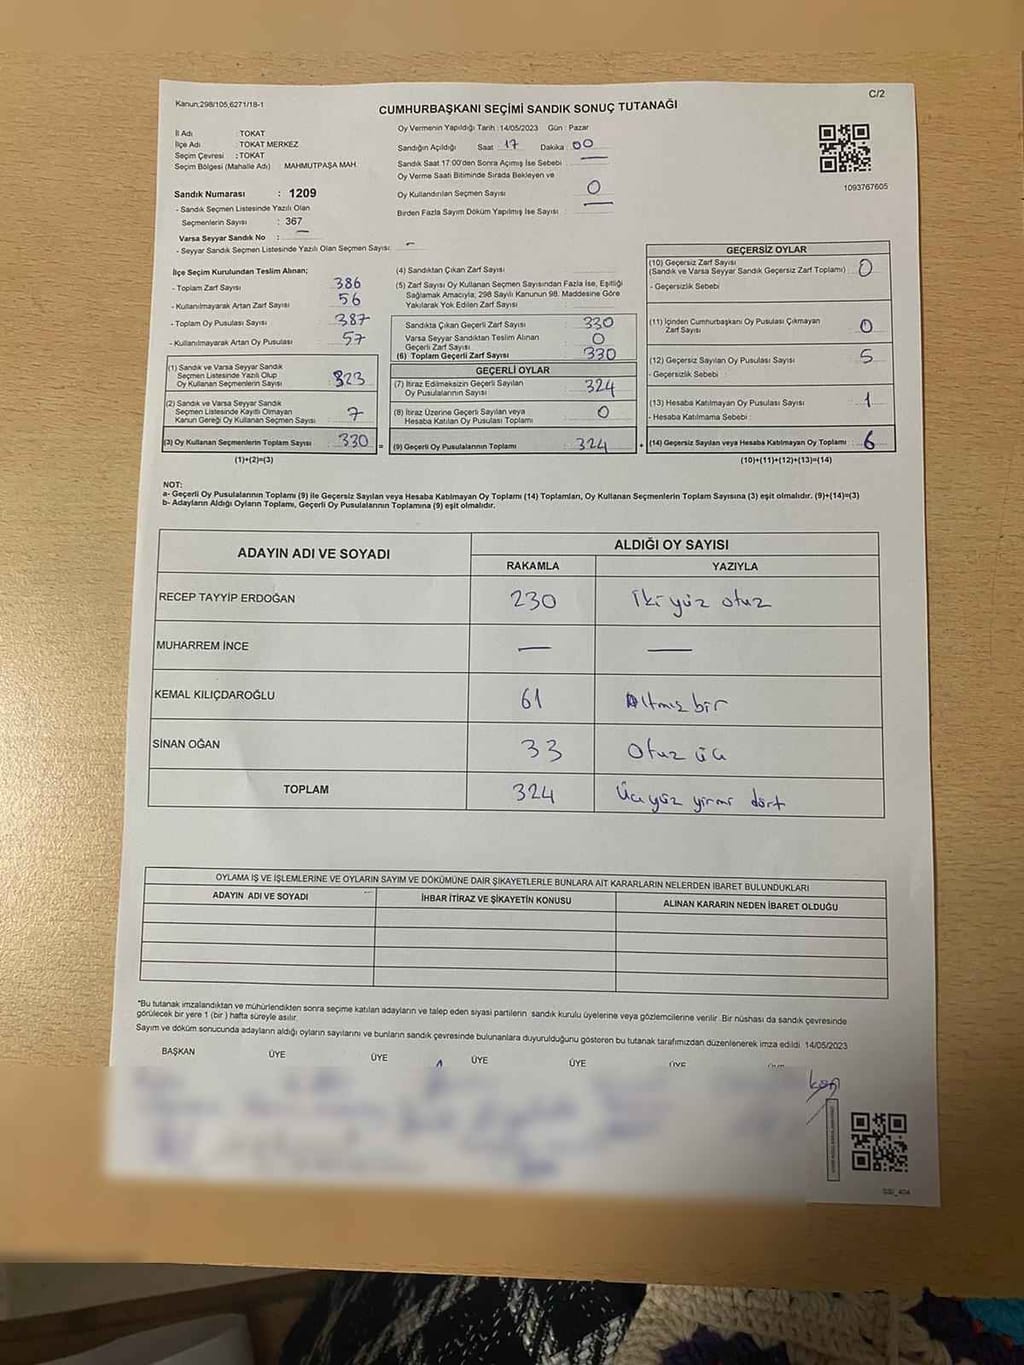 Kanun;298/105;6271/18-1
C/2
CUMHURBAŞKANI SEÇİMİ SANDIK SONUÇ TUTANAĞI
İl Adı : TOKAT
İlçe Adı : TOKAT MERKEZ
Seçim Çevresi : TOKAT
Seçim Bölgesi (Mahalle Adı) : MAHMUTPAŞA MAH.
Sandık Numarası : 1209
- Sandık Seçmen Listesinde Yazılı Olan
Seçmenlerin Sayısı : 367
Varsa Seyyar Sandık No : —
- Seyyar Sandık Seçmen Listesinde Yazılı Olan Seçmen Sayısı: -
Oy Vermenin Yapıldığı Tarih :14/05/2023 Gün : Pazar
Sandığın Açıldığı Saat : 17 Dakika : 00
Sandık Saat 17:00'den Sonra Açımış İse Sebebi : —
Oy Verme Saati Bitiminde Sırada Bekleyen ve
Oy Kullandırılan Seçmen Sayısı : 0
Birden Fazla Sayım Döküm Yapılmış İse Sayısı : —
1093767605
İlçe Seçim Kurulundan Teslim Alınan;
- Toplam Zarf Sayısı : 386
- Kullanılmayarak Artan Zarf Sayısı : 56
- Toplam Oy Pusulası Sayısı : 387
- Kullanılmayarak Artan Oy Pusulası : 57
(1) Sandık ve Varsa Seyyar Sandık
Seçmen Listesinde Yazılı Olup
Oy Kullanan Seçmenlerin Sayısı : 323
(2) Sandık ve Varsa Seyyar Sandık
Seçmen Listesinde Kayıtlı Olmayan
Kanun Gereği Oy Kullanan Seçmen Sayısı : 7
(3) Oy Kullanan Seçmenlerin Toplam Sayısı : 330 =
(1)+(2)=(3)
(4) Sandıktan Çıkan Zarf Sayısı :
(5) Zarf Sayısı Oy Kullanan Seçmen Sayısından Fazla İse, Eşitliği
Sağlamak Amacıyla, 298 Sayılı Kanunun 98. Maddesine Göre
Yakılarak Yok Edilen Zarf Sayısı :
Sandıkta Çıkan Geçerli Zarf Sayısı : 330
Varsa Seyyar Sandıktan Teslim Alınan
Geçerli Zarf Sayısı : 0
(6) Toplam Geçerli Zarf Sayısı : 330
GEÇERLİ OYLAR
(7) İtiraz Edilmeksizin Geçerli Sayılan
Oy Pusulalarının Sayısı : 324
(8) İtiraz Üzerine Geçerli Sayılan veya
Hesaba Katılan Oy Pusulası Toplamı : 0
(9) Geçerli Oy Pusulalarının Toplamı : 324 +
GEÇERSİZ OYLAR
(10) Geçersiz Zarf Sayısı
(Sandık ve Varsa Seyyar Sandık Geçersiz Zarf Toplamı) : 0
- Geçersizlik Sebebi :
(11) İçinden Cumhurbaşkanı Oy Pusulası Çıkmayan
Zarf Sayısı : 0
(12) Geçersiz Sayılan Oy Pusulası Sayısı : 5
- Geçersizlik Sebebi :
(13) Hesaba Katılmayan Oy Pusulası Sayısı : 1
- Hesaba Katılmama Sebebi :
(14) Geçersiz Sayılan veya Hesaba Katılmayan Oy Toplamı : 6
(10)+(11)+(12)+(13)=(14)
NOT:
a- Geçerli Oy Pusulalarının Toplamı (9) ile Geçersiz Sayılan veya Hesaba Katılmayan Oy Toplamı (14) Toplamları, Oy Kullanan Seçmenlerin Toplam Sayısına (3) eşit olmalıdır. (9)+(14)=(3)
b- Adayların Aldığı Oyların Toplamı, Geçerli Oy Pusulalarının Toplamına (9) eşit olmalıdır.
ADAYIN ADI VE SOYADI ALDIĞI OY SAYISI
RAKAMLA YAZIYLA
RECEP TAYYİP ERDOĞAN 230 İki yüz otuz
MUHARREM İNCE — —
KEMAL KILIÇDAROĞLU 61 Altmış bir
SİNAN OĞAN 33 Otuz üç
TOPLAM 324 Üçyüz yirmi dört
OYLAMA İŞ VE İŞLEMLERİNE VE OYLARIN SAYIM VE DÖKÜMÜNE DAİR ŞİKAYETLERLE BUNLARA AİT KARARLARIN NELERDEN İBARET BULUNDUKLARI
ADAYIN ADI VE SOYADI İHBAR İTİRAZ VE ŞİKAYETİN KONUSU ALINAN KARARIN NEDEN İBARET OLDUĞU
*Bu tutanak imzalandıktan ve mühürlendikten sonra seçime katılan adayların ve talep eden siyasi partilerin sandık kurulu üyelerine veya gözlemcilerine verilir. Bir nüshası da sandık çevresinde
görülecek bir yere 1 (bir ) hafta süreyle asılır.
Sayım ve döküm sonucunda adayların aldığı oyların sayılarını ve bunların sandık çevresinde bulunanlara duyurulduğunu gösteren bu tutanak tarafımızdan düzenlenerek imza edildi. 14/05/2023
BAŞKAN ÜYE ÜYE ÜYE ÜYE ÜYE ÜYE